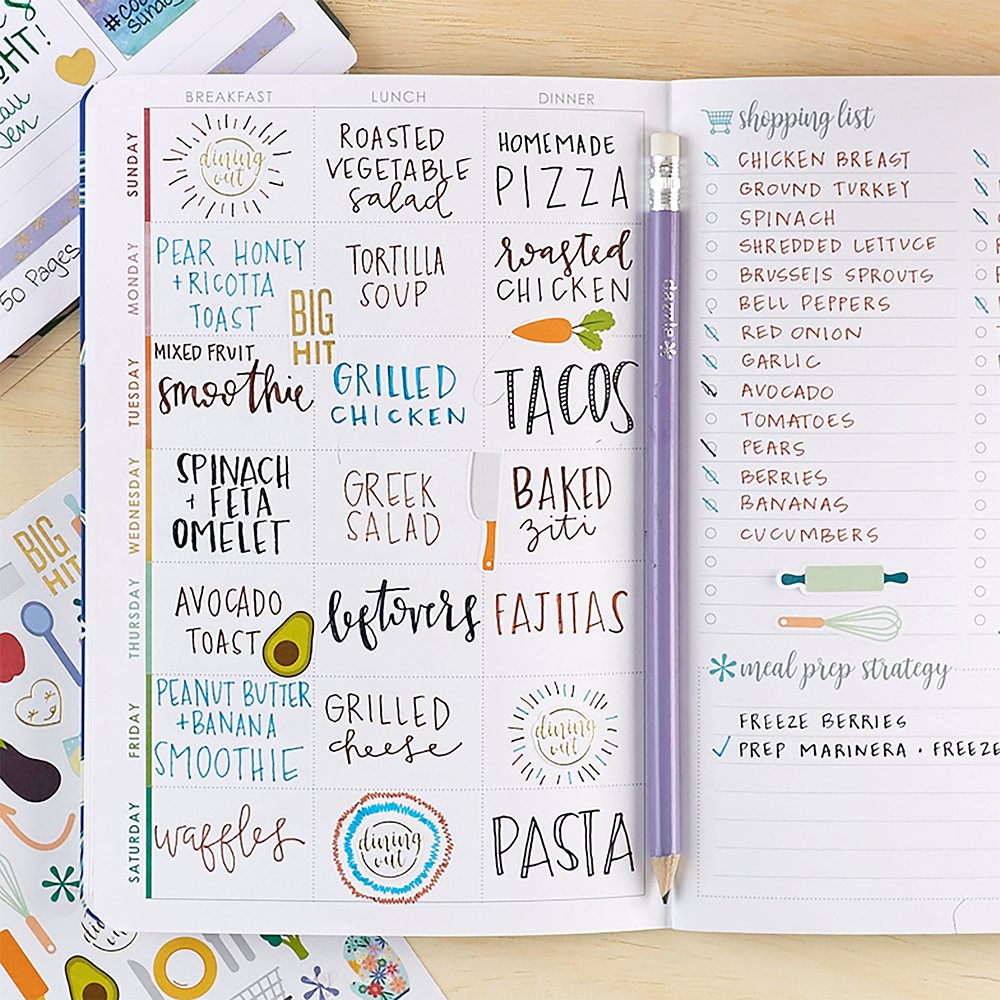 HT!
50 Pages
BREAKFAST LUNCH DINNER
SUNDAY
dining
out
ROASTED
VEGETABLE
salad
HOMEMADE
PIZZA
MONDAY
PEAR HONEY
+ RICOTTA
TOAST
BIG
HIT
TORTILLA
SOUP
roasted
CHICKEN
TUESDAY
MIXED FRUIT
smoothie
GRILLED
CHICKEN
TACOS
WEDNESDAY
SPINACH
+ FETA
OMELET
GREEK
SALAD
BAKED
ziti
THURSDAY
AVOCADO
TOAST
leftovers
FAJITAS
FRIDAY
PEANUT BUTTER
+ BANANA
SMOOTHIE
GRILLED
cheese
dining
out
SATURDAY
waffles
dining
out
PASTA
shopping list
CHICKEN BREAST
GROUND TURKEY
SPINACH
SHREDDED LETTUCE
BRUSSEIS SPROUTS
BELL PEPPERS
RED ONION
GARLIC
AVOCADO
TOMATOES
PEARS
BERRIES
BANANAS
CUCUMBERS
meal prep strategy
FREEZE BERRIES
PREP MARINERA · FREEZE
BIG
HIT
dining
out